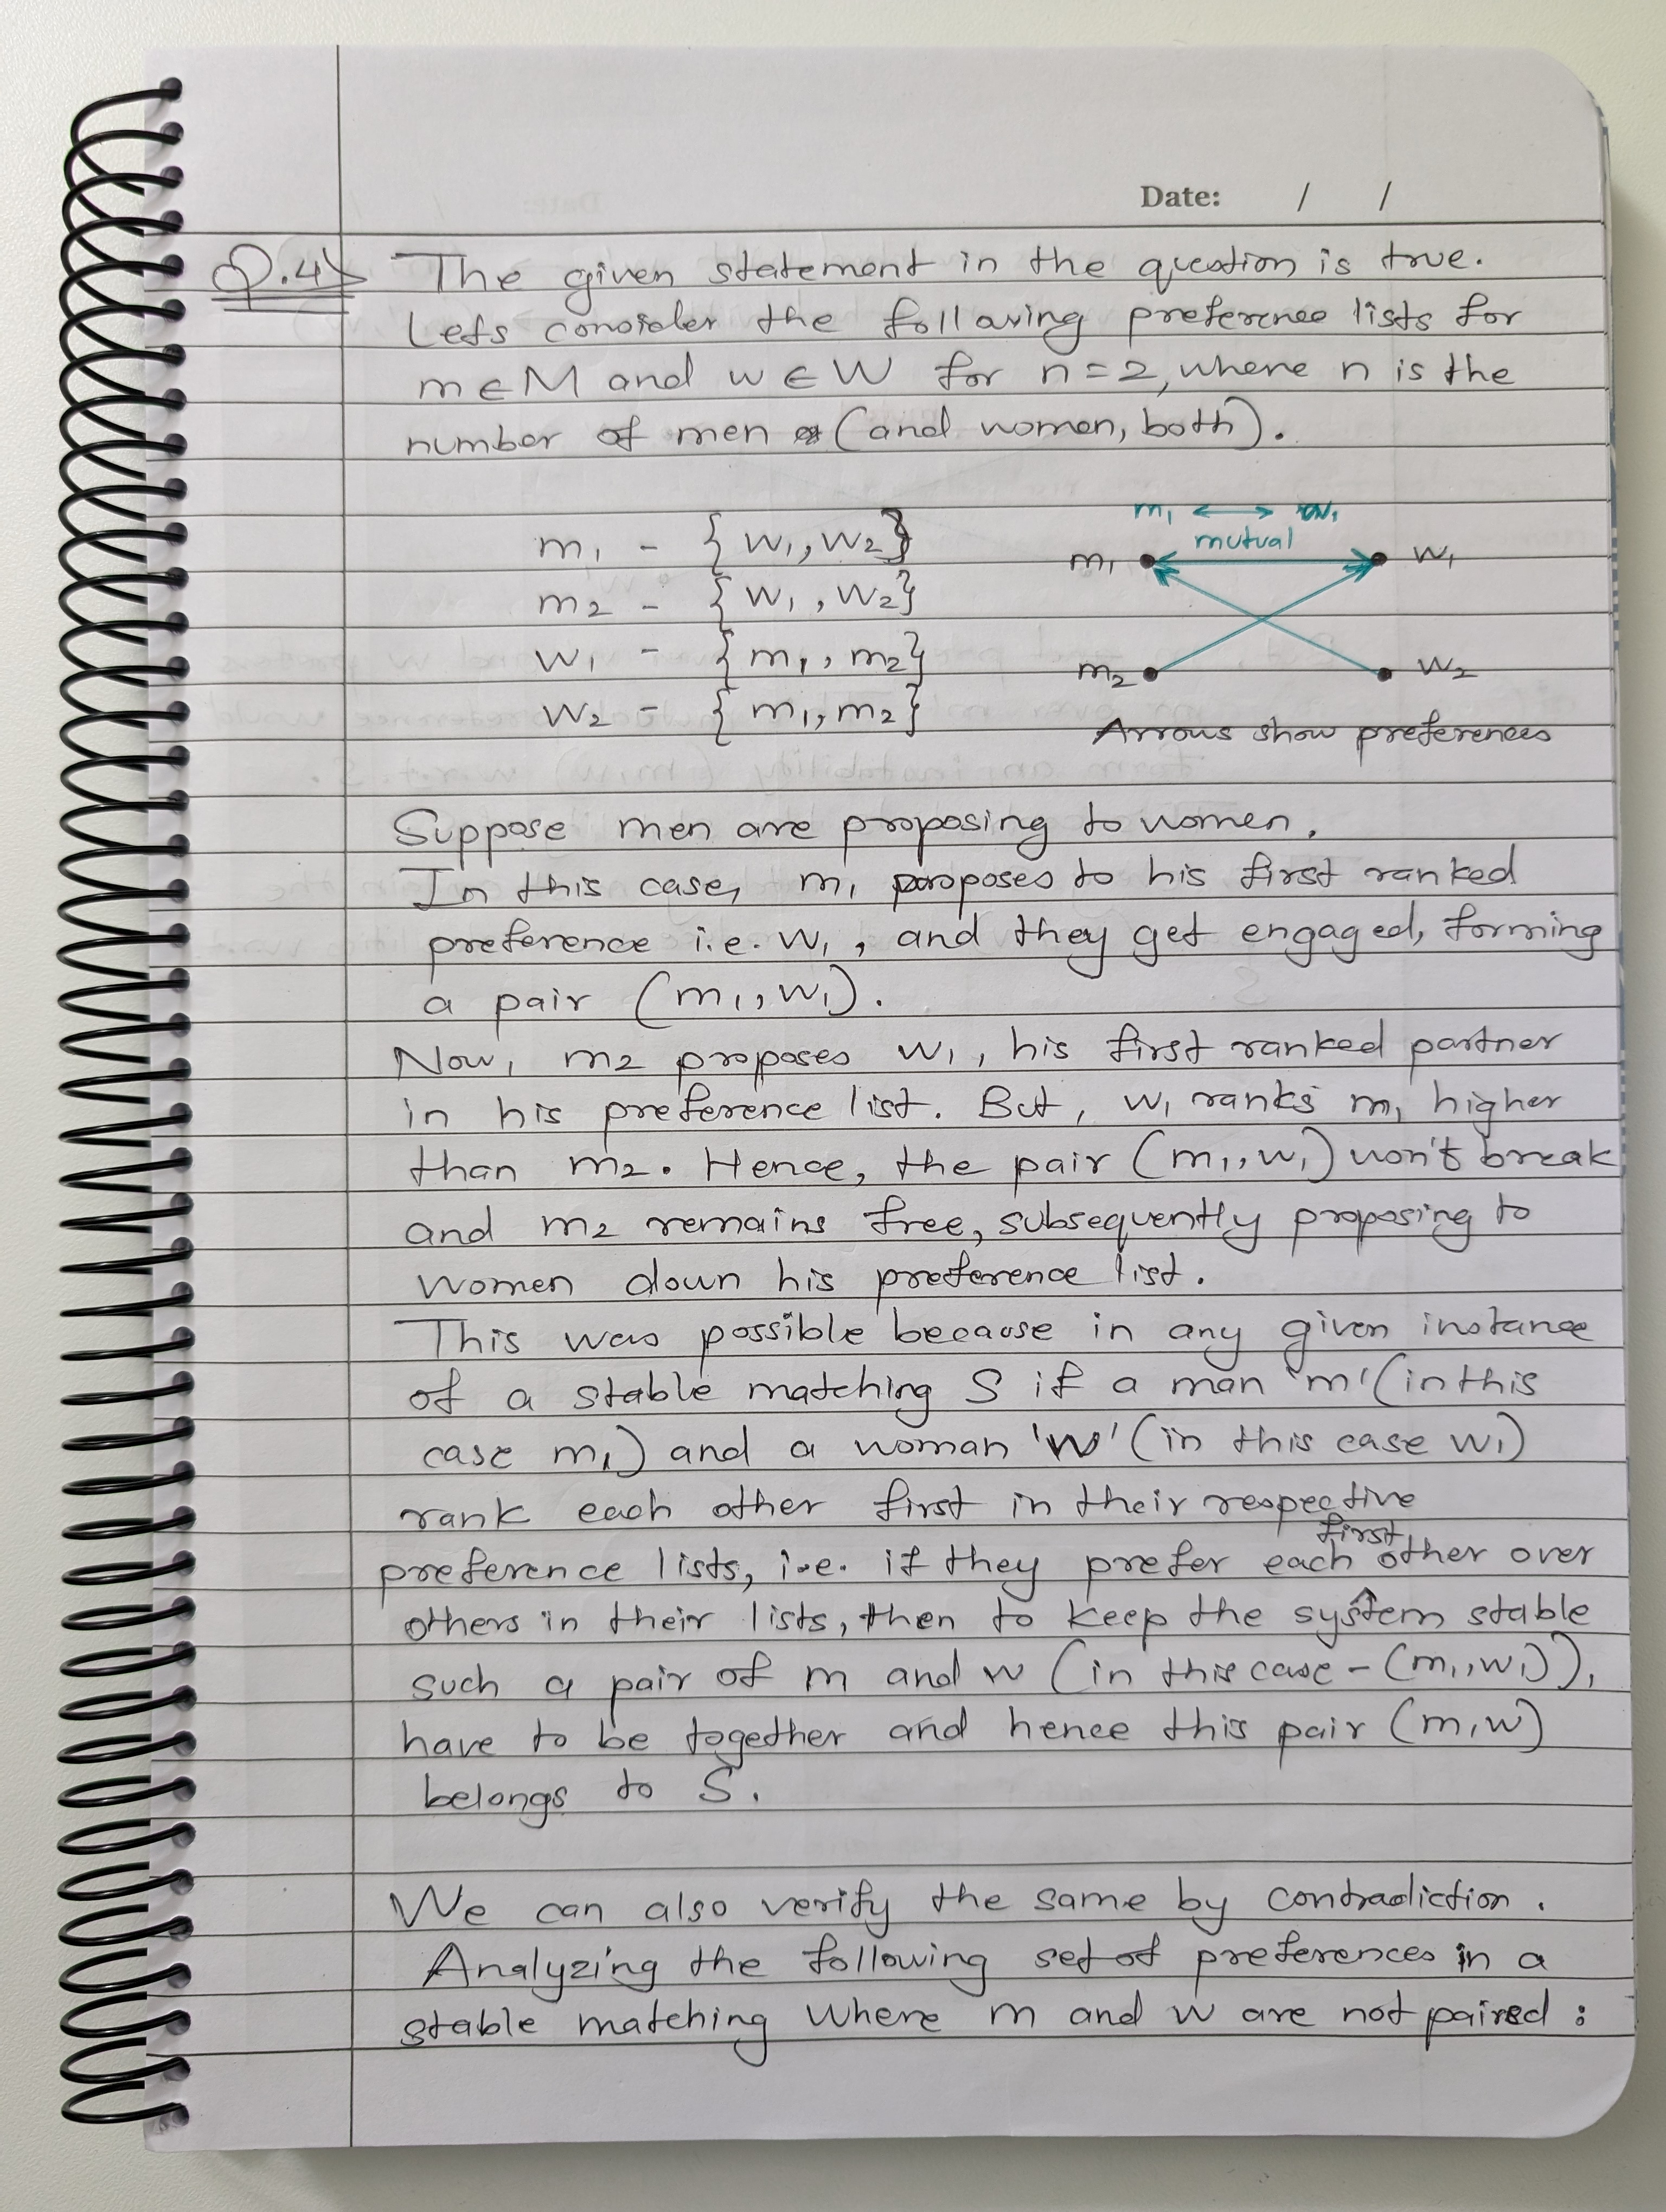 Date: / /
Q.4) The given statement in the question is true.
Lets consider the following preference lists for
m ∈ M and w ∈ W for n=2, where n is the
number of men (and women, both).
m₁ ⟷ w₁
mutual
m₁ - { w₁, w₂}
m₁ w₁
m₂ - { w₁, w₂}
w₁ - { m₁, m₂}
m₂ w₂
w₂ - { m₁, m₂}
Arrows show preferences
Suppose men are proposing to women.
In this case, m₁ proposes to his first ranked
preference i.e. w₁, and they get engaged, forming
a pair (m₁, w₁).
Now, m₂ proposes w₁, his first ranked partner
in his preference list. But, w₁ ranks m₁ higher
than m₂. Hence, the pair (m₁, w₁) won't break
and m₂ remains free, subsequently proposing to
women down his preference list.
This was possible because in any given instance
of a stable matching S if a man 'm' (in this
case m₁) and a woman 'w' (in this case w₁)
rank each other first in their respective
first
preference lists, i.e. if they prefer each other over
others in their lists, then to keep the system stable
such a pair of m and w (in this case - (m₁, w₁)),
have to be together and hence this pair (m, w)
belongs to S.
We can also verify the same by contradiction.
Analyzing the following set of preferences in a
stable matching where m and w are not paired :